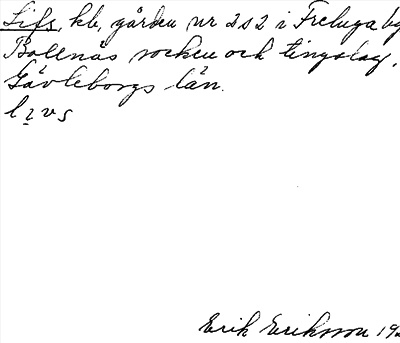 Lifs, kb, gården nr 2 s 2 i Freluga by
Bollnäs socken och tingslag,
Gävleborgs län.
livs
Erik Eriksson 19